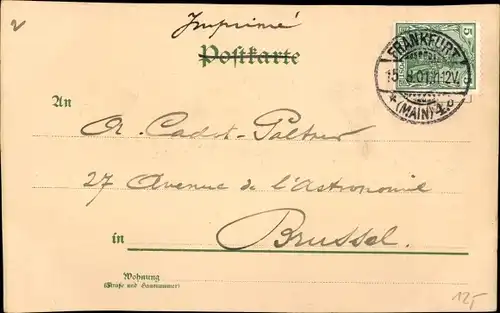 2
Imprimé
Postkarte
5
FRANKFURT
(MAIN)
An
A. Cadet-
27 Avenue de l'Astronomie
in Brussel.
Wohnung
(Straße und Hausnummer)
12,-